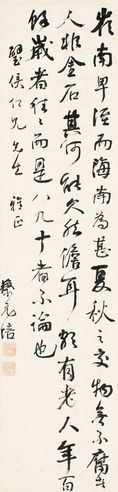 嶺南卑溼而海南為甚夏秋之交物無不腐者
人非金石其何能久然儋耳頗有老人年百
餘歲者往往而是八九十者不論也
璧侯仁兄先生 雅正
蔡元培